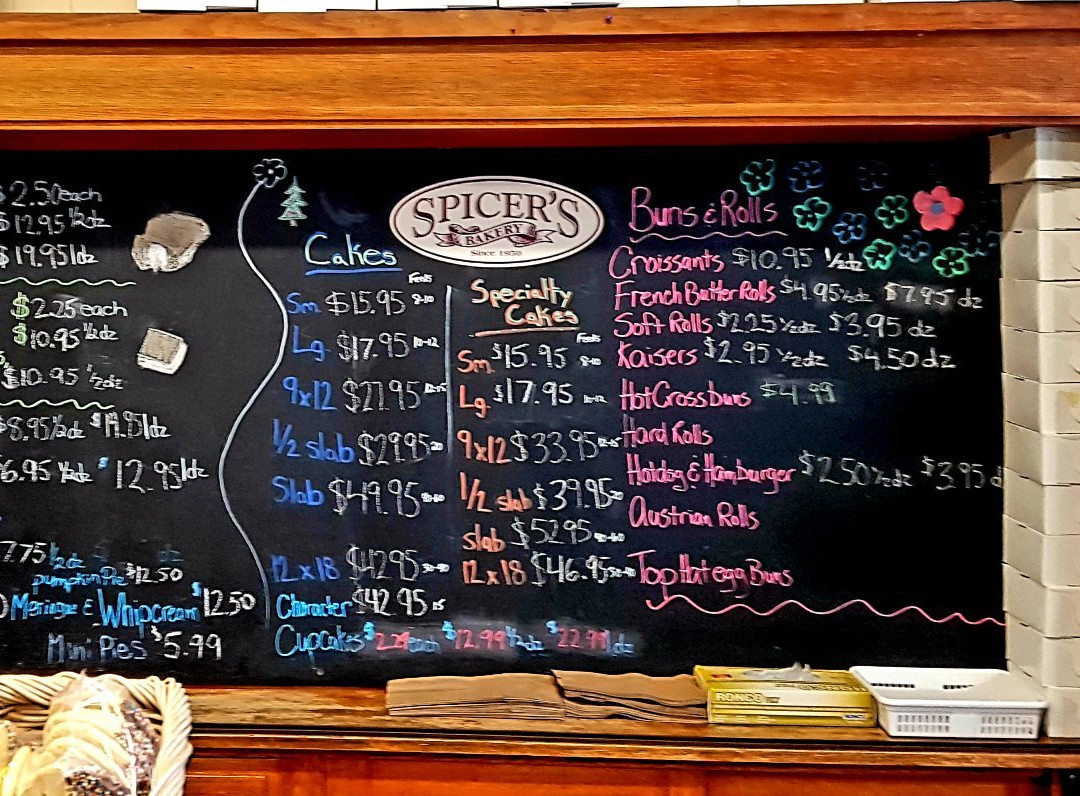 $2.50each
$12.95 1/2dz
$19.95 1dz
$2.25each
$10.95 1/2dz
$10.95 1/2dz
$8.95 1/2dz $
6.95 1/2dz $12.95 1dz
7.75 1/2dz $ dz
pumpkin Pie $12.50
Meringue & Whipcream $12.50
Mini Pies $5.99
SPICER'S
BAKERY
Since 1950
Cakes
Feeds
Sm $15.95 8-10
Lg $17.95 10-12
9x12 $27.95
1/2 slab $29.95
Slab $49.95
12x18 $42.95
Character $42.95 15
Cupcakes $2.29each $12.99 1/2dz $22.99 1dz
Specialty
Cakes
Feeds
Sm $15.95 8-10
Lg $17.95 10-12
9x12 $33.95
1/2 slab $39.95
slab $52.95
12x18 $46.95
Buns & Rolls
Croissants $10.95 1/2dz
French Butter Rolls $4.95 1/2dz $7.95 dz
Soft Rolls $2.25 1/2dz $3.95 dz
Kaisers $2.95 1/2dz $4.50 dz
Hot Cross buns $4.99
Hard Rolls
Hotdog & Hamburger $2.50 1/2dz $3.95 d
Austrian Rolls
Top Hat egg Buns
RONCO